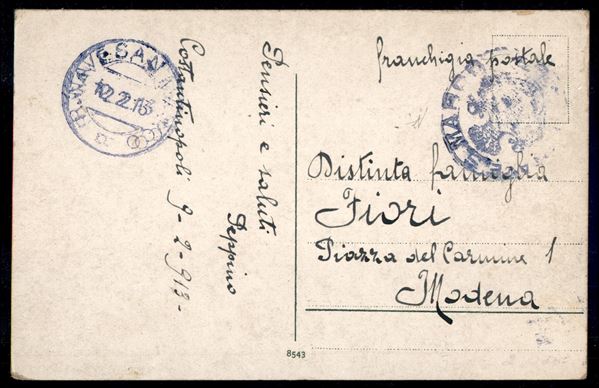 R. NAVE SAN MARCO
12.2.13
Pensieri e saluti
Peppino
Costantinopoli 9-2-913-
franchigia postale
Distinta famiglia
Fiori
Piazza del Carmine 1
Modena
8543